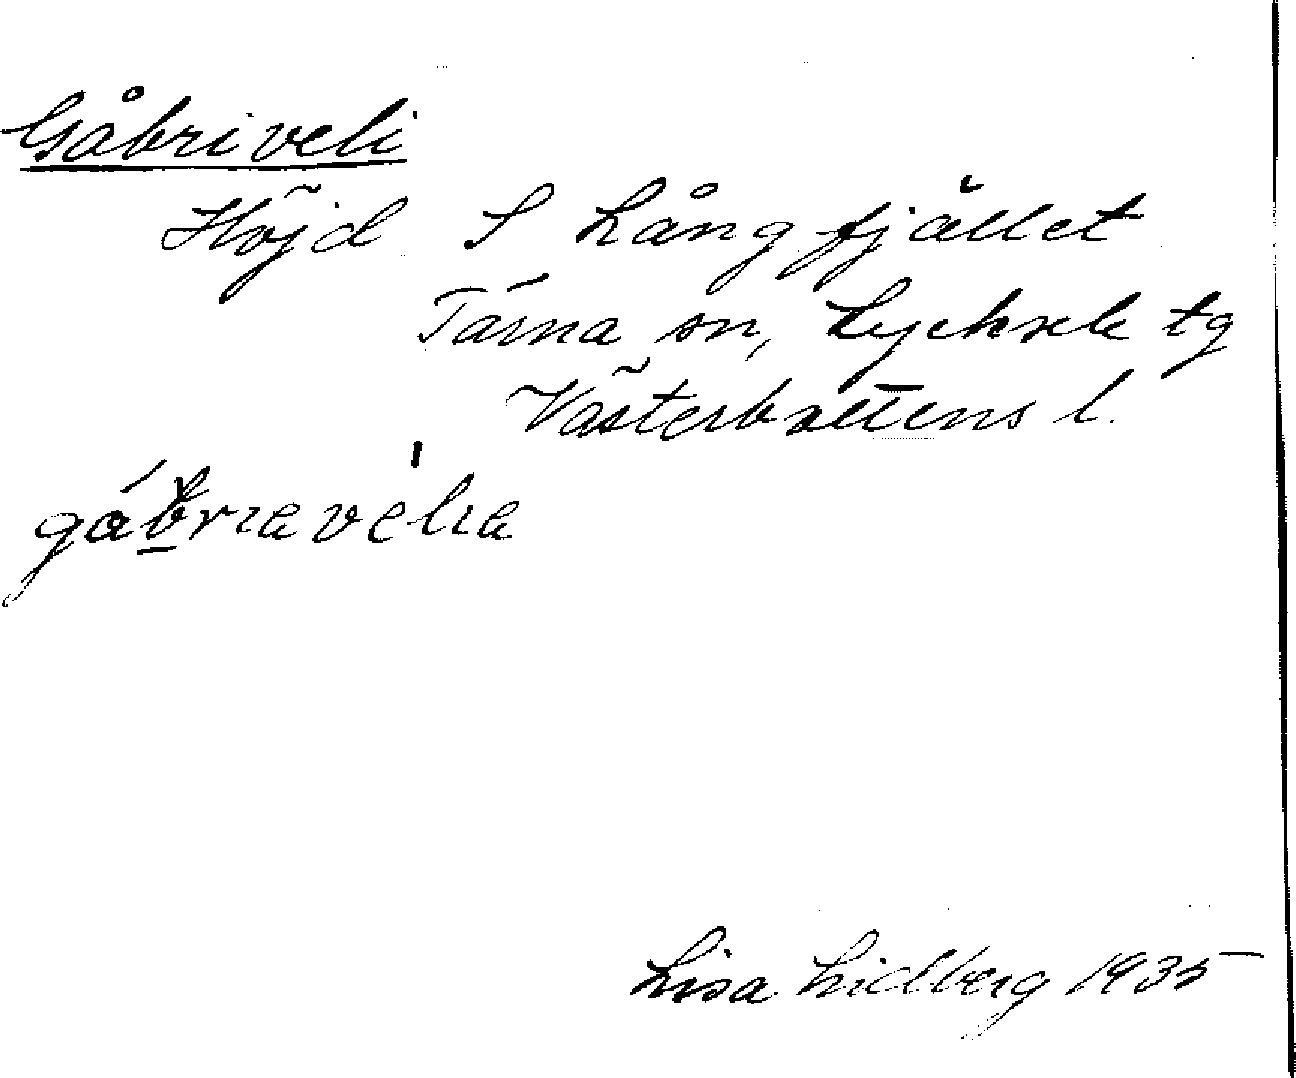 Gåbriveli
Höjd S Långfjället
Tärna sn, Lycksele tg
Västerbottens l.
gáb̬rıavélıa
Lisa Lidberg 1935